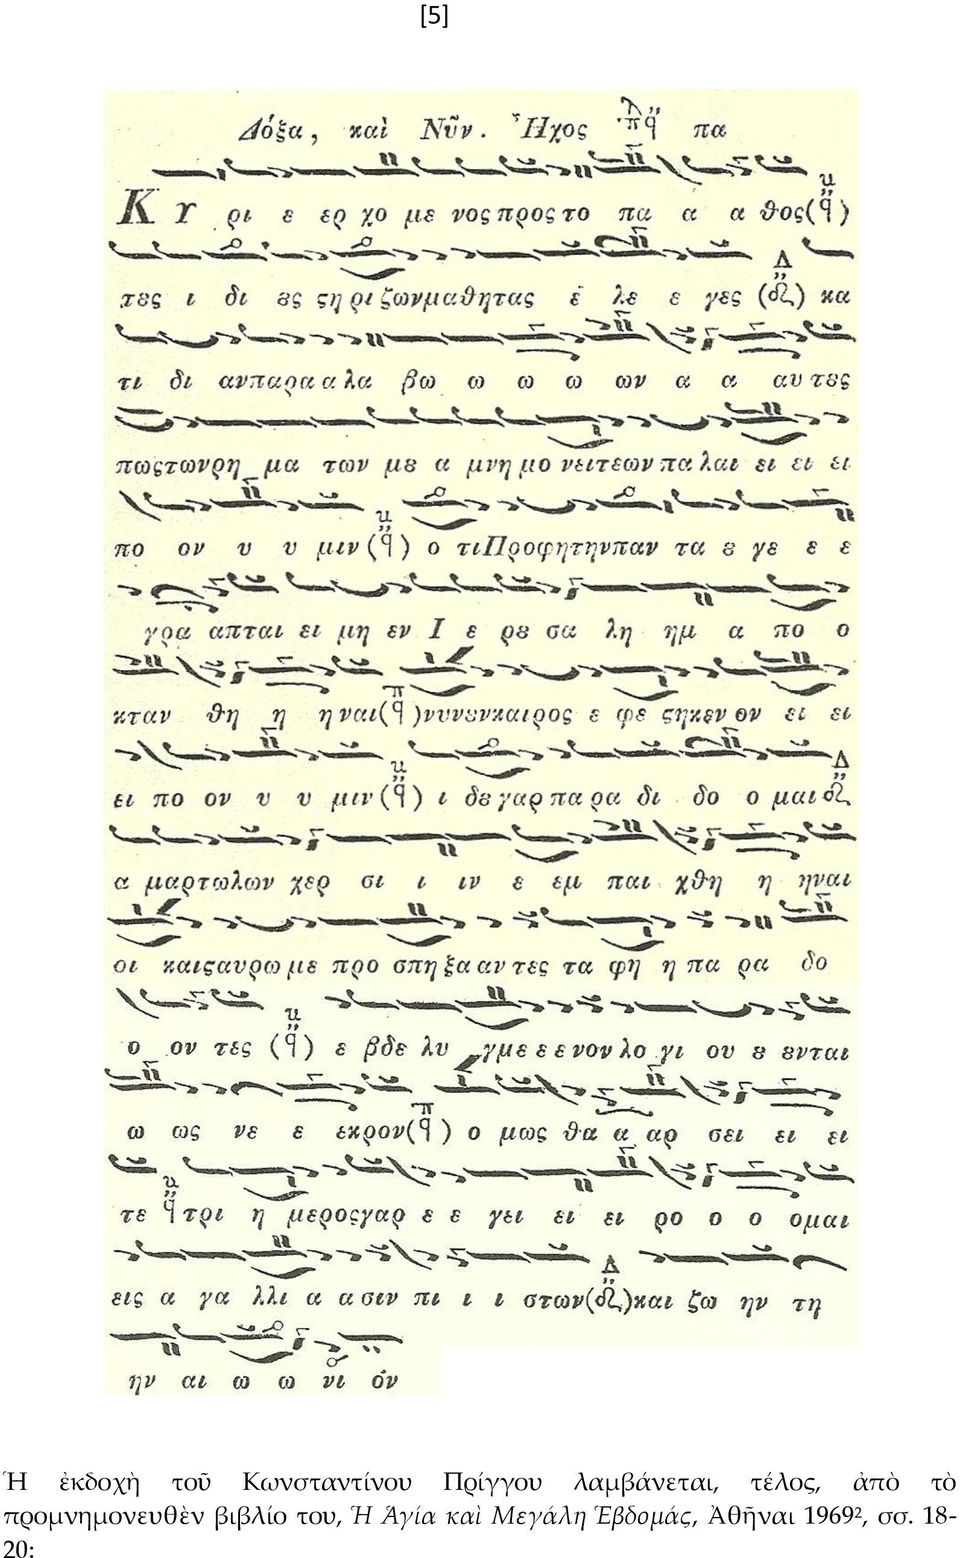 [5]
Δόξα, καὶ Νῦν. Ἦχος πα
Κ υ ρι ε ερ χο με νος προς το πα α α θος( )
τȣς ι δι ȣς ϛη ρι ζων μαθητας ε λε ε γες ( ) κα
τι δι αν παρα α λα βω ω ω ω ων α α αυ τȣς
πως των ρη μα των μȣ α μνη μο νειτε ων πα λαι ει ει ει
πο ον υ υ μιν ( ) ο τι Προφητην παν τα ȣ γε ε ε
γρα απται ει μη εν Ι ε ρȣ σα λη ημ α πο ο
κταν θη η η ναι( )νυν ȣν καιρος ε φε ϛηκεν ον ει ει
ει πο ον υ υ μιν( ) ι δȣ γαρ πα ρα δι δο ο μαι
α μαρτωλων χερ σι ι ιν ε εμ παι χθη η ηναι
οι και ϛαυρω με προ σπηξα αν τες τα φη η πα ρα δο
ο ον τες ( ) ε βδε λυ γμε ε ε νον λο γι ου ȣ ȣνται
ω ως νε ε εκρον( ) ο μως θα α αρ σει ει ει
τε τρι η μερος γαρ ε ε γει ει ει ρο ο ο ομαι
εις α γα λλι α α σιν πι ι ι στων( )και ζω ην τη
ην αι ω ω νι ον
Ἡ ἐκδοχὴ τοῦ Κωνσταντίνου Πρίγγου λαμβάνεται, τέλος, ἀπὸ τὸ
προμνημονευθὲν βιβλίο του, Ἡ Ἁγία καὶ Μεγάλη Ἑβδομάς, Ἀθῆναι 1969², σσ. 18-
20: